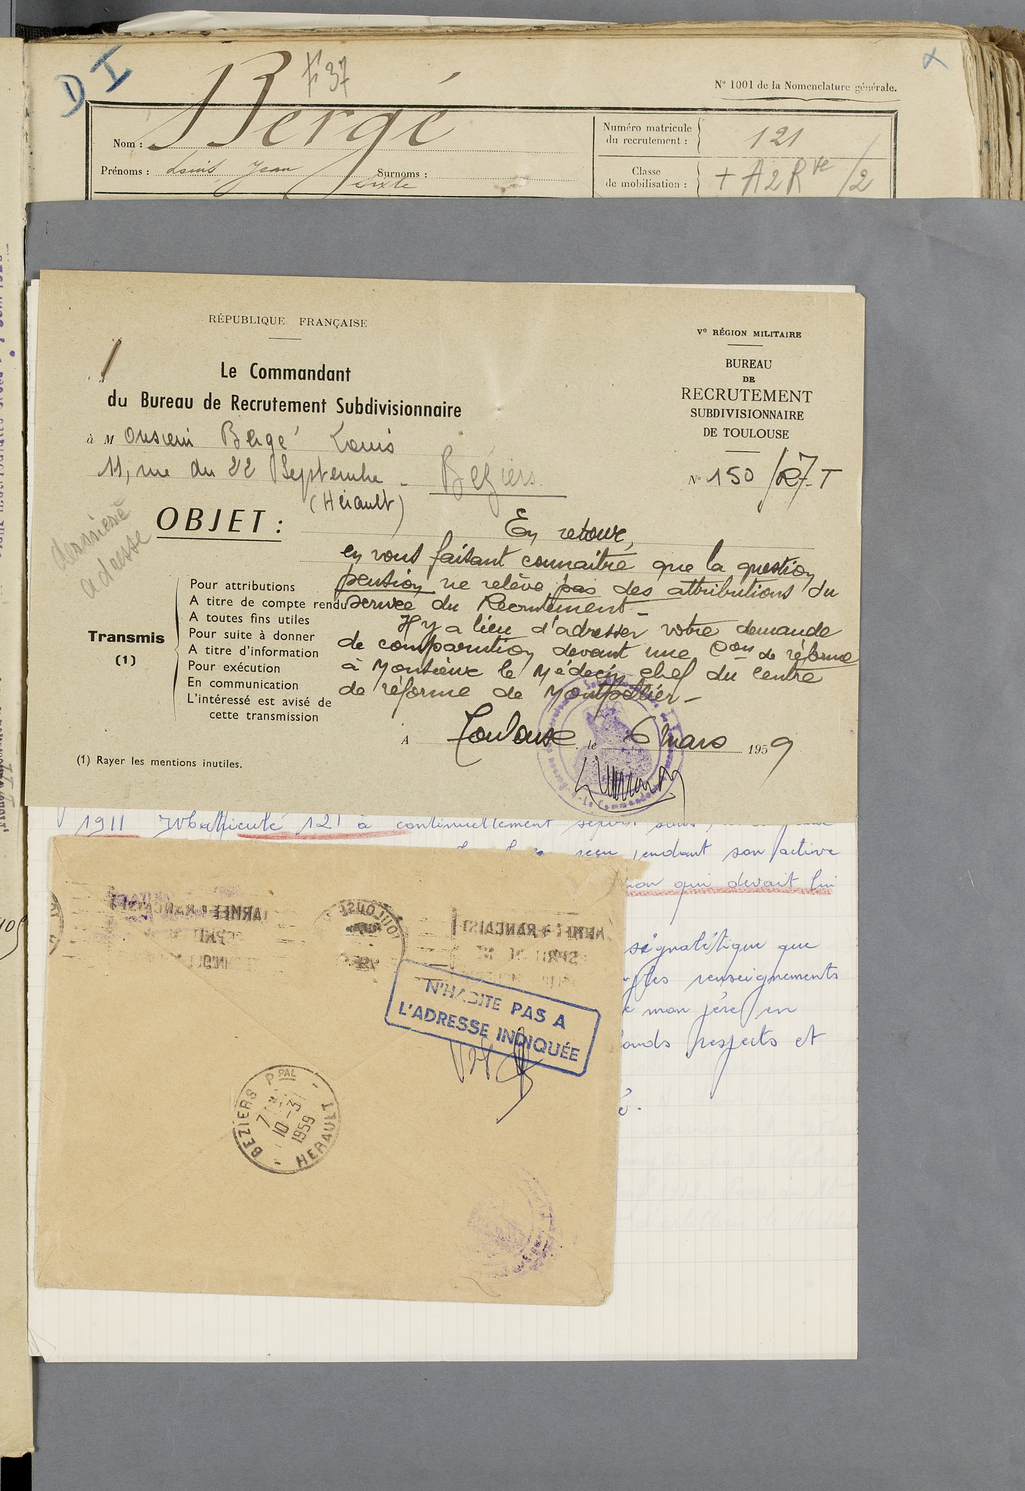 D I
F 37
N° 1001 de la Nomenclature générale.
Nom : Bergé
Prénoms : Louis Jean Surnoms :
Sixte
Numéro matricule
du recrutement : 121
Classe
de mobilisation : + A2Rve /2
RÉPUBLIQUE FRANÇAISE
Le Commandant
du Bureau de Recrutement Subdivisionnaire
à M Onsieur Bergé Louis
11, rue du 22 Septembre - Béziers
(Hérault)
Ve RÉGION MILITAIRE
BUREAU
DE
RECRUTEMENT
SUBDIVISIONNAIRE
DE TOULOUSE
N° 150 /R7.T
dernière
adresse
OBJET :
En retour,
en vous faisant connaitre que la question
pension ne relève pas des attributions du
service du Recrutement -
Il y a lieu d'adresser votre demande
de comparution devant une Con de réforme
à Monsieur le Médecin chef du centre
de réforme de Montpellier -
Transmis
(1)
Pour attributions
A titre de compte rendu
A toutes fins utiles
Pour suite à donner
A titre d'information
Pour exécution
En communication
L'intéressé est avisé de
cette transmission
A Toulouse le 6 mars 1959
(1) Rayer les mentions inutiles.
1911 Matricule 121 à continuellement
reçu pendant son active
qui devait lui
signalétique que
les renseignements
mon père en
respects et
N'HABITE PAS A
L'ADRESSE INDIQUÉE
BEZIERS PPAL
10-3
1959
HERAULT